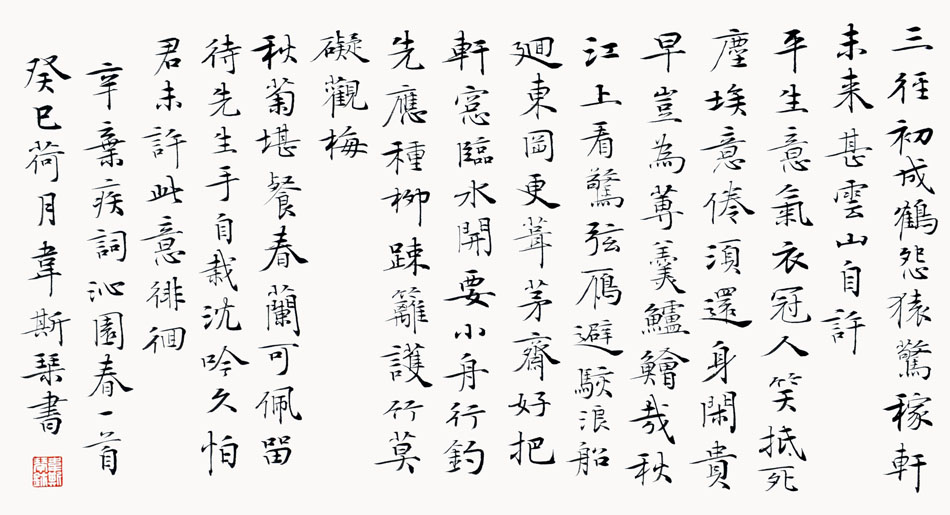 三徑初成鶴怨猿驚稼軒
未来甚雲山自許
平生意氣衣冠人笑抵死
塵埃意倦須還身閑貴
早豈為蓴羹鱸鱠哉秋
江上看驚弦鴈避駭浪船
迴東岡更葺茅齋好把
軒窓臨水開要小舟行釣
先應種柳疎籬護竹莫
礙觀梅
秋菊堪餐春蘭可佩留
待先生手自栽沈吟久怕
君未許此意徘徊
辛棄疾詞沁園春一首
癸巳荷月韋斯琹書